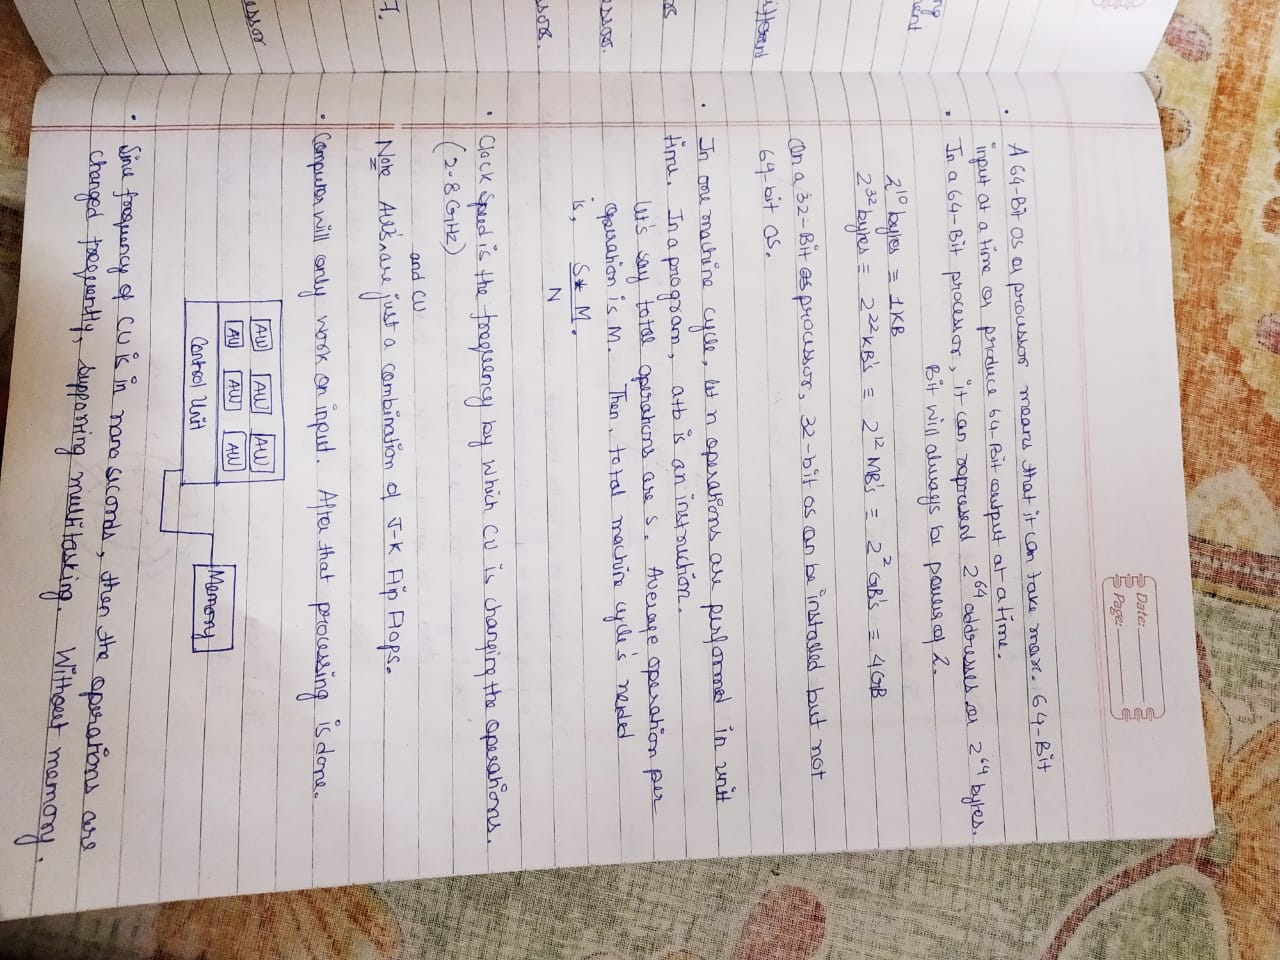 Date:
Page:
• A 64-Bit os or processor means that it can take max. 64-Bit
input at a time or produce 64-Bit output at a time.
• In a 64-Bit processor, it can represent 2^64 addresses or 2^64 bytes.
Bit will always be power of 2.
2^10 bytes ≡ 1KB
2^32 bytes ≡ 2^22 KB's ≡ 2^12 MB's ≡ 2^2 GB's ≡ 4GB
On a 32-Bit processor, 32-bit os can be installed but not
64-bit os.
• In one machine cycle, let n operations are performed in unit
time. In a program, a+b is an instruction.
Let's say total operations are s. Average operation per
operation is M. Then, total machine cycle's needed
is, S * M.
N
• Clock Speed is the frequency by which CU is changing the operations.
(2.8 GHz)
and CU
Note ALU's are just a combination of J-K Flip Flops.
• Computer will only work on input. After that processing is done.
ALU ALU ALU
ALU ALU ALU
Control Unit
Memory
• Since frequency of CU is in nano seconds, then the operations are
changed frequently, supporting multitasking. Without memory.
essor
T.
ssors.
essor.
ors
ifferent
ng
ment